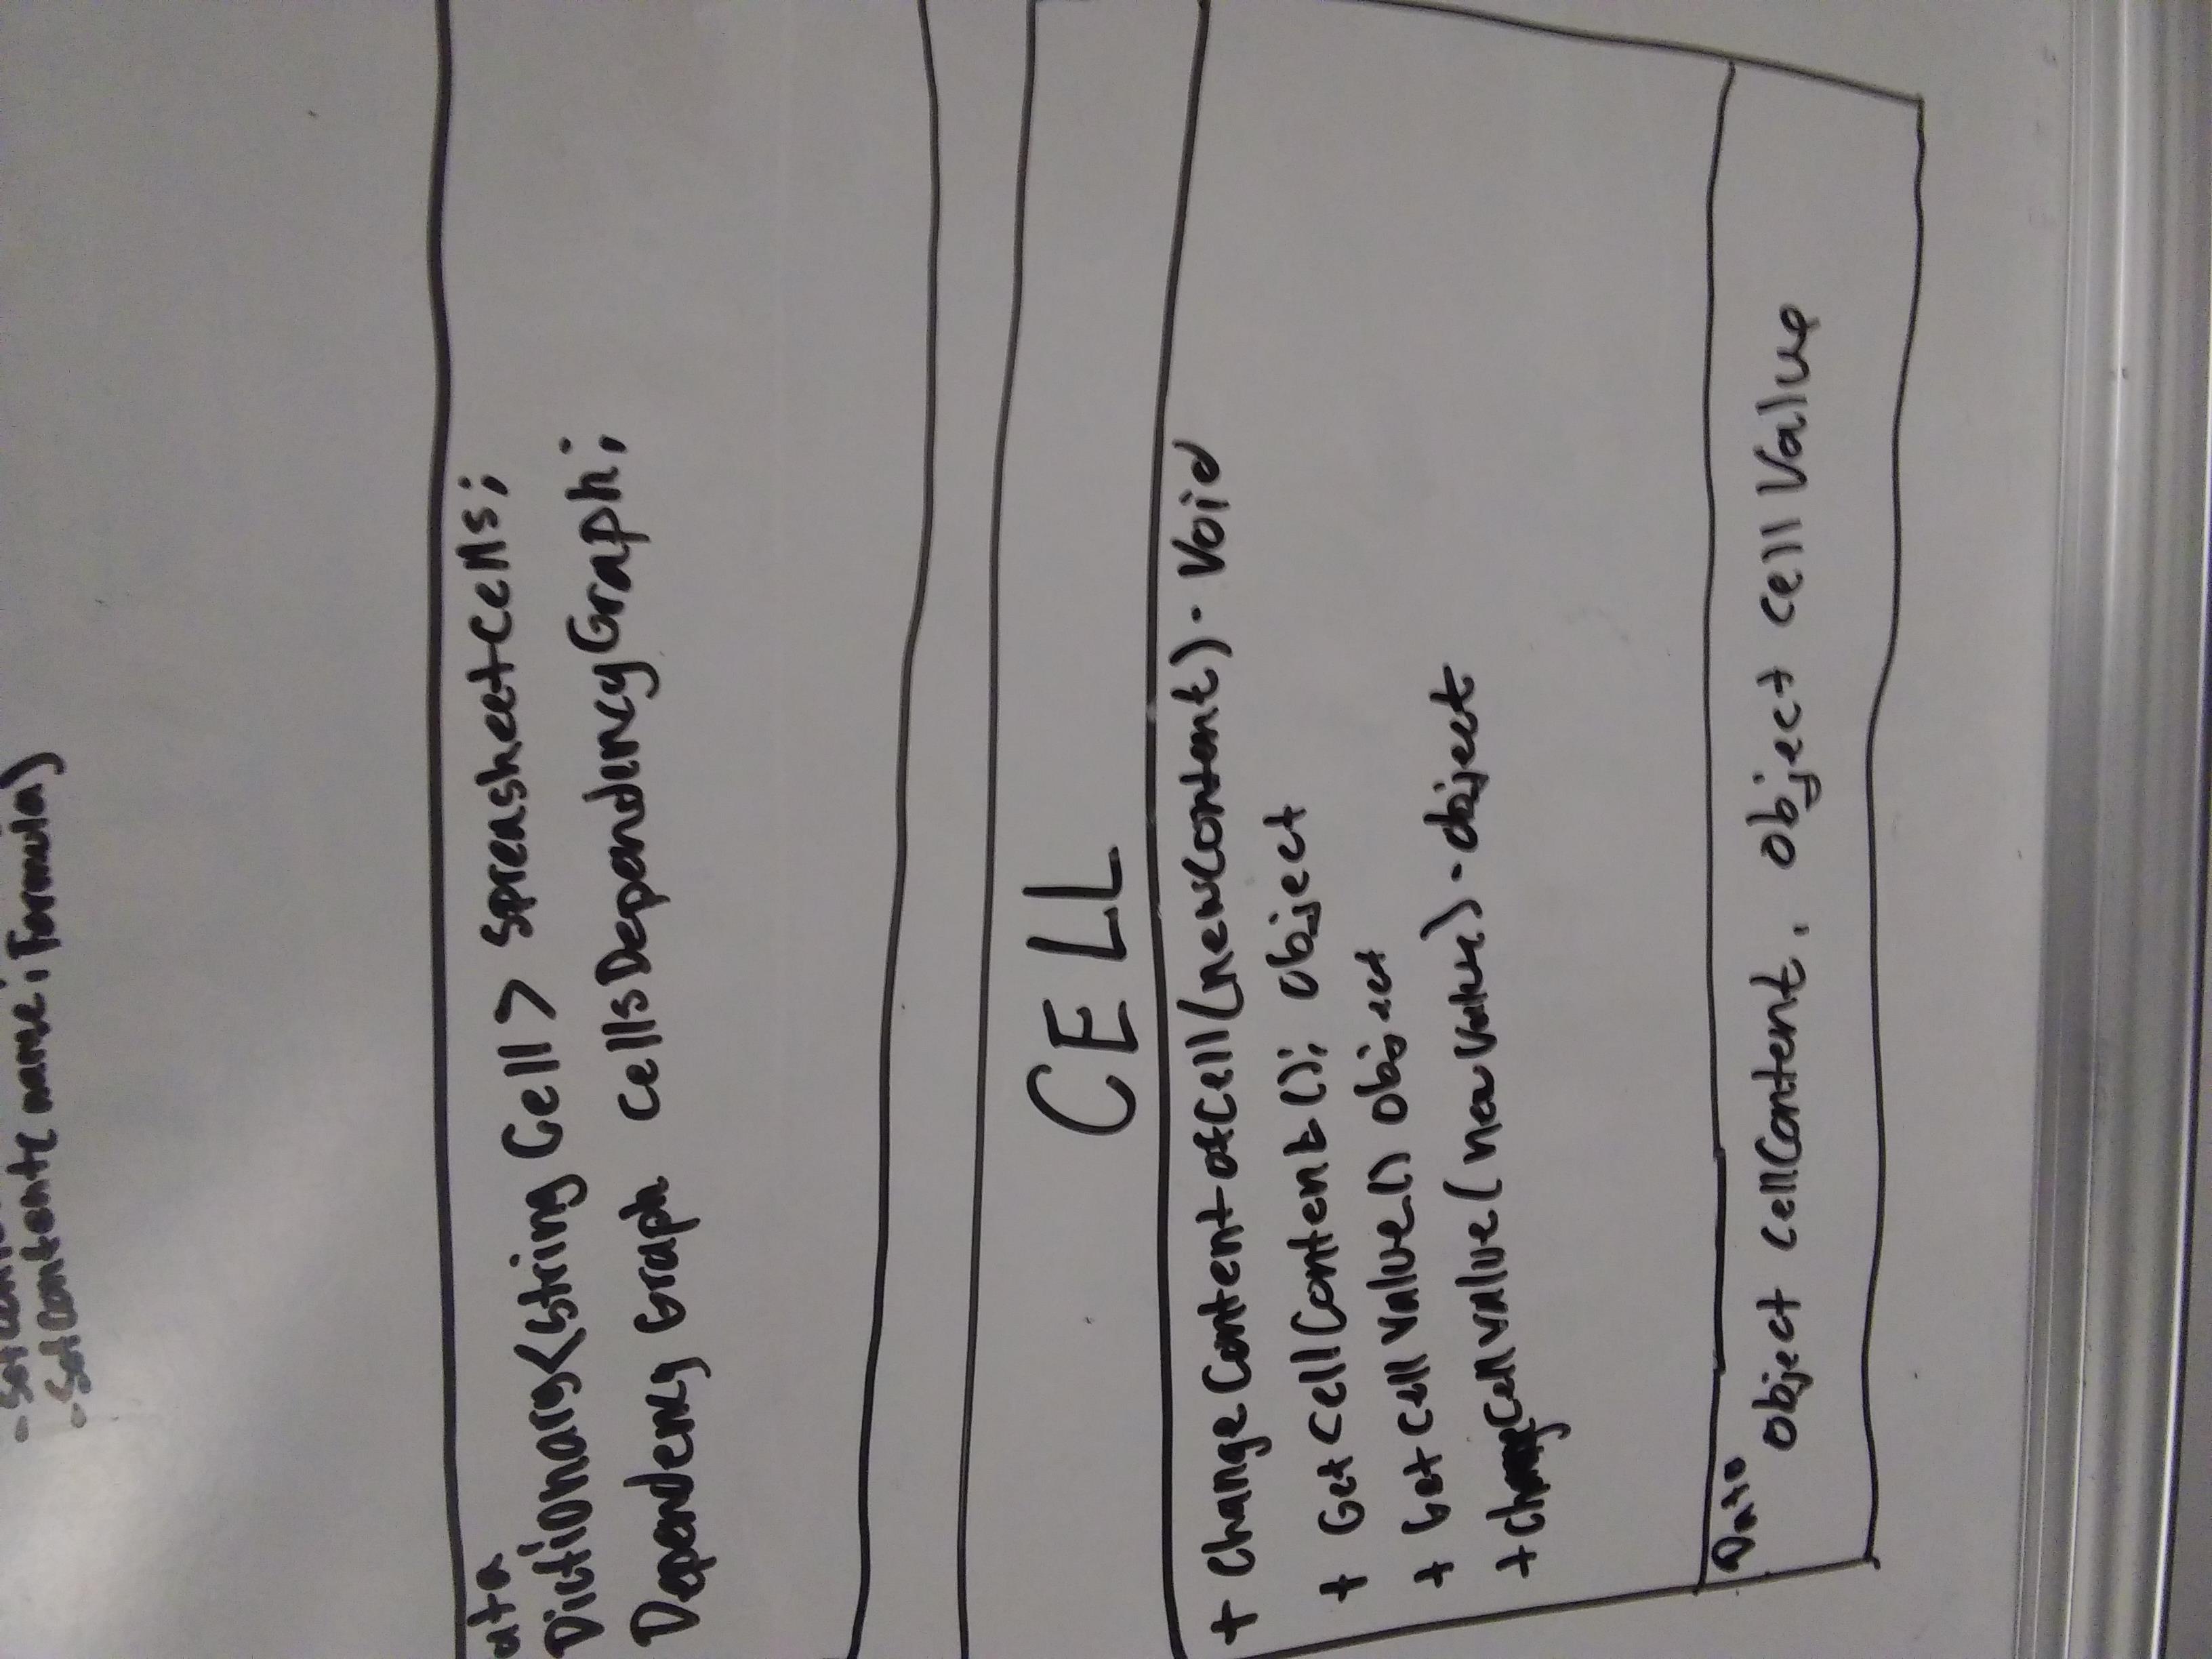 - SetConte
- SetContents name; Formula)
ata
Dictionary<String Cell> SpreasheetCells;
Dependency Graph CellsDependencyGraph;
CELL
+ ChangeContentofCell(newContent). Void
+ GetCellContent(); Object
+ GetCellValue() Object
+ ChangeCellValue(newValue). object
Data
Object cellContent. Object cellValue